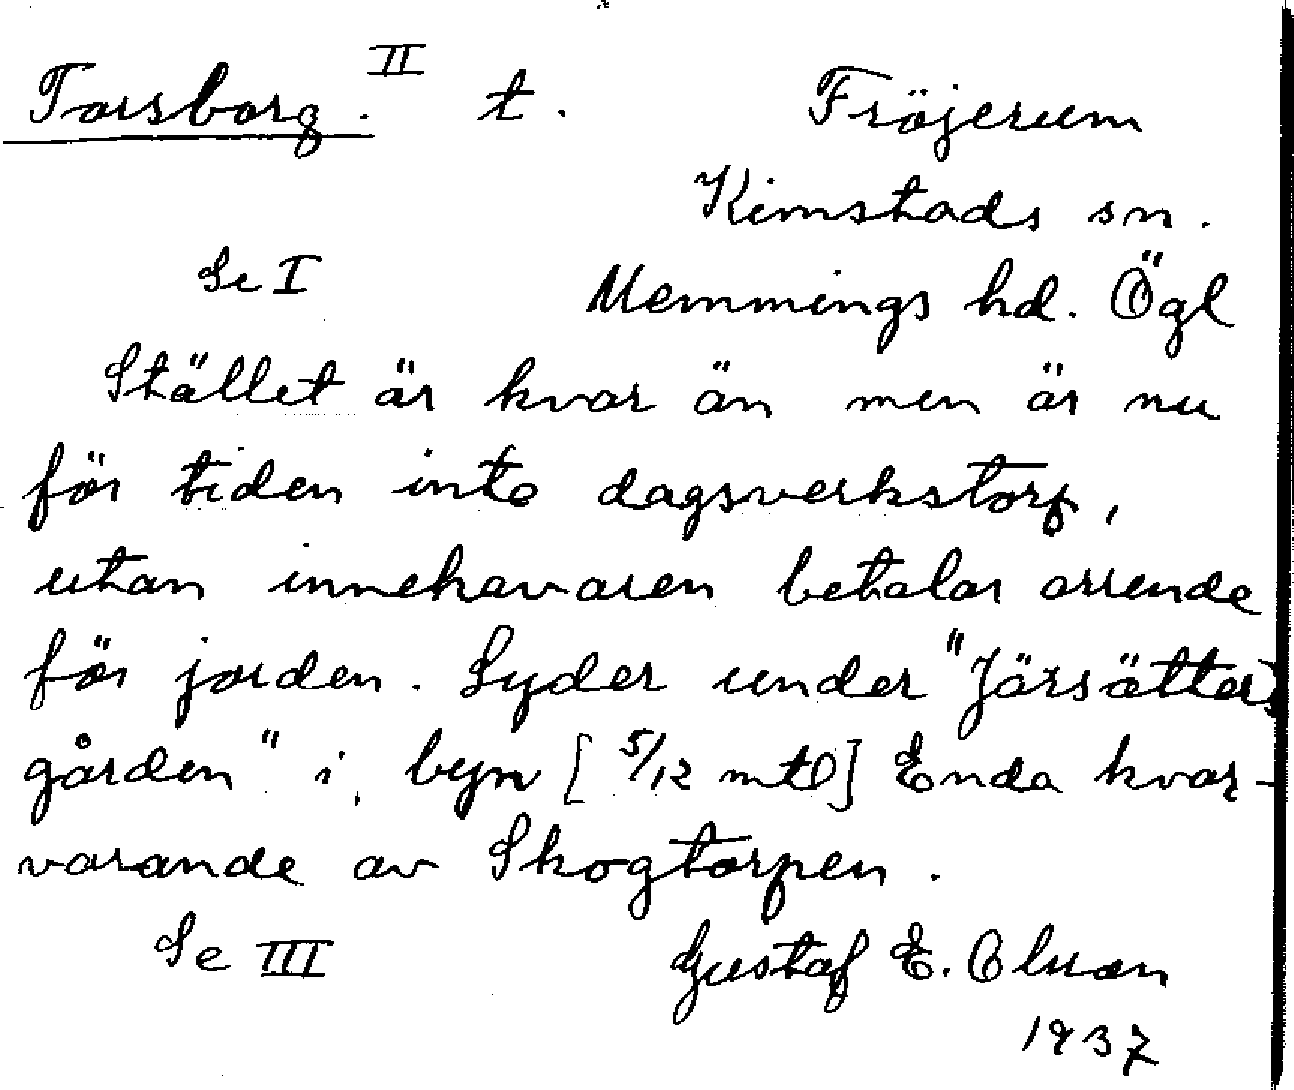 Torsborg. II t. Fröjerum
Kimstads sn.
Se I Memmings hd. Ögl
Stället är kvar än men är nu
för tiden inte dagsverkstorp,
utan innehavaren betalar arrende
för jorden. Lyder under "Järsätters
gården" i byn [5/12 mtl] Enda kvar-
varande av Skogtorpen.
Se III Gustaf E.
1937